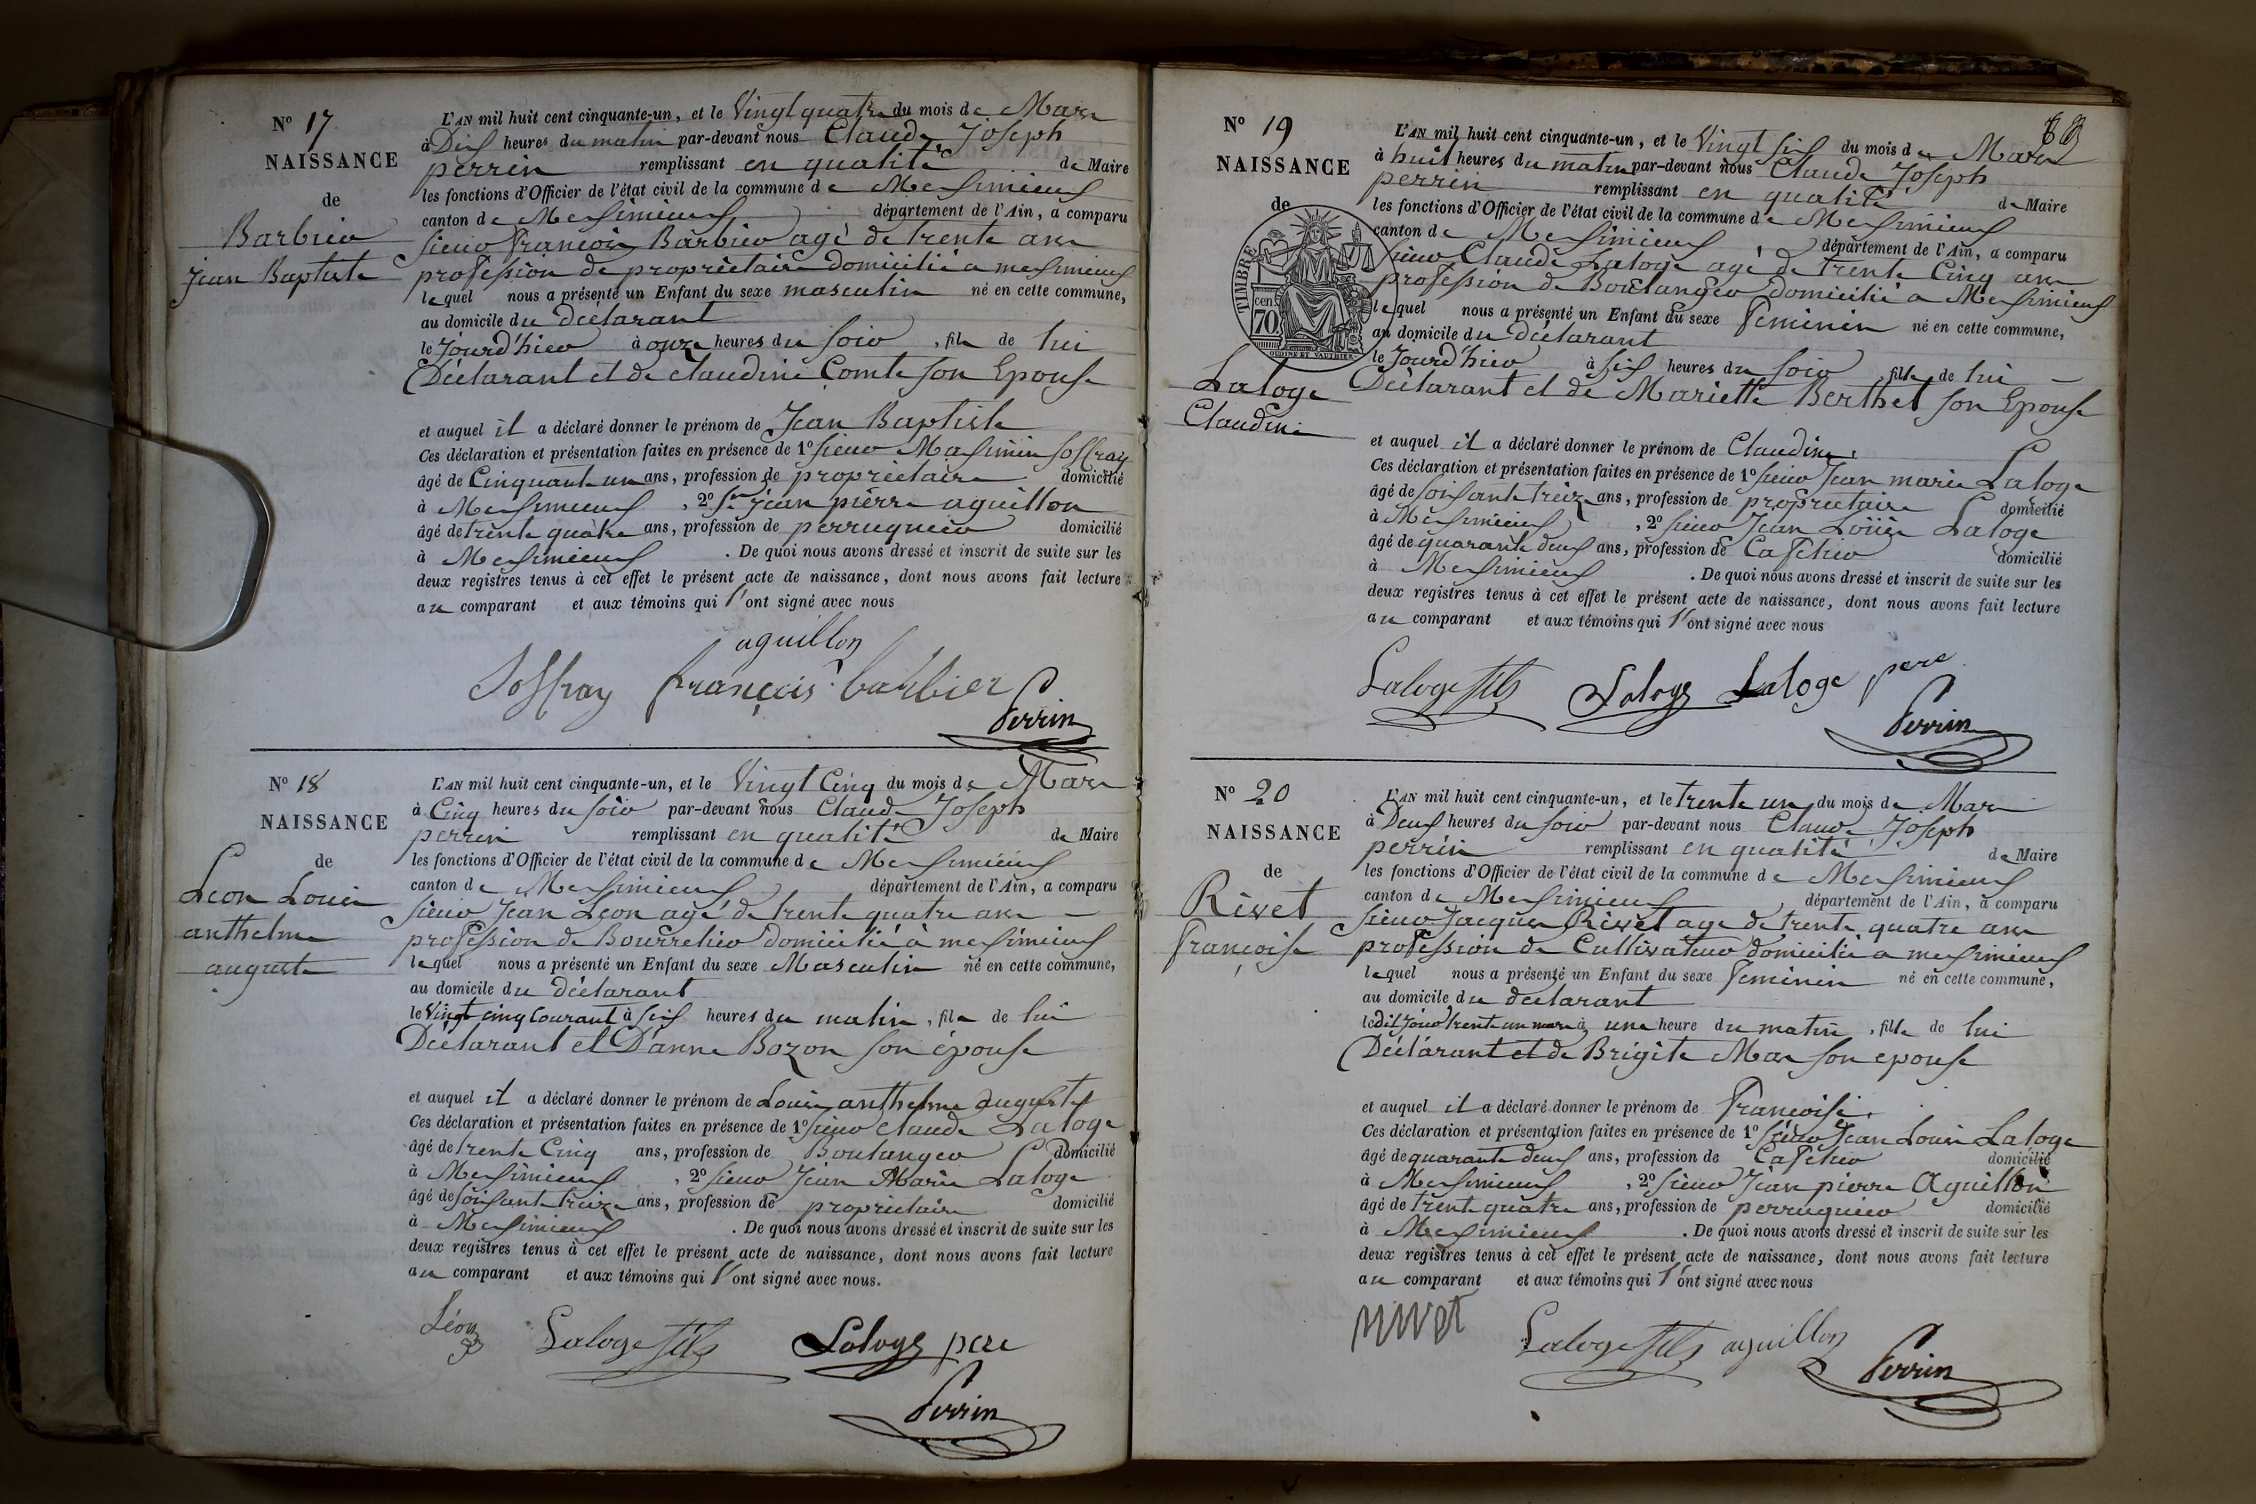 N° 17
NAISSANCE
de
Barbier
Jean Baptiste
L'AN mil huit cent cinquante-un, et le Vingt quatre du mois de Mars
à Dix heures du matin par-devant nous Claude Joseph
perrin remplissant en qualité de Maire
les fonctions d'Officier de l'état civil de la commune de Messimieux
canton de Messimieux département de l'Ain, a comparu
sieur françois Barbier agé de trente ans
profession de propriétaire domicilié a messimieux
lequel nous a présenté un Enfant du sexe masculin né en cette commune,
au domicile du déclarant
le Jourd'hier à onze heures du soir, fils de lui
Déclarant et de claudine Comte son Epouse
et auquel il a déclaré donner le prénom de Jean Baptiste
Ces déclaration et présentation faites en présence de 1° sieur Maximin Soffray
âgé de Cinquante un ans, profession de propriétaire domicilié
à Messimieux, 2° Sr. jean pierre aguillon
âgé de trente quatre ans, profession de perruquier domicilié
à Messimieux. De quoi nous avons dressé et inscrit de suite sur les
deux registres tenus à cet effet le présent acte de naissance, dont nous avons fait lecture
au comparant et aux témoins qui l'ont signé avec nous
aguillon
Soffray françois barbier
Perrin
N° 18
NAISSANCE
de
Leon Louis
anthelme
auguste
L'AN mil huit cent cinquante-un, et le Vingt Cinq du mois de Mars
à Cinq heures du soir par-devant nous Claude Joseph
perrin remplissant en qualité de Maire
les fonctions d'Officier de l'état civil de la commune de Messimieux
canton de Messimieux département de l'Ain, a comparu
sieur Jean Leon agé de trente quatre ans
profession de Bourrelier domicilié à messimieux
lequel nous a présenté un Enfant du sexe Masculin né en cette commune,
au domicile du déclarant
le Vingt cinq Courant à six heures du matin, fils de lui
Déclarant et D'anne Bozon son épouse
et auquel il a déclaré donner le prénom de Louis anthelme auguste
Ces déclaration et présentation faites en présence de 1° sieur claude Laloge
âgé de trente Cinq ans, profession de Boulanger domicilié
à Messimieux, 2° sieur Jean Marie Laloge
âgé de soixante treize ans, profession de propriétaire domicilié
à Messimieux. De quoi nous avons dressé et inscrit de suite sur les
deux registres tenus à cet effet le présent acte de naissance, dont nous avons fait lecture
au comparant et aux témoins qui l'ont signé avec nous.
Léon Laloge fils Laloge pere
Perrin
N° 19
NAISSANCE
de
TIMBRE
cen.
70
OUDINE ET VAUTHIER
Laloge
Claudine
L'AN mil huit cent cinquante-un, et le Vingt six du mois de Mars
à huit heures du matin par-devant nous Claude Joseph
perrin remplissant en qualité de Maire
les fonctions d'Officier de l'état civil de la commune de Messimieux
canton de Messimieux département de l'Ain, a comparu
sieur Claude Laloge agé de trente Cinq ans
profession de Boulanger domicilié a Messimieux
lequel nous a présenté un Enfant du sexe feminin né en cette commune,
au domicile du déclarant
le Jourd'hier à six heures du soir, fille de lui
Déclarant et de Mariette Berthet son Epouse
et auquel il a déclaré donner le prénom de Claudine.
Ces déclaration et présentation faites en présence de 1° sieur Jean marie Laloge
âgé de soixante treize ans, profession de propriétaire domicilié
à Messimieux, 2° sieur Jean Loüis Laloge
âgé de quarante deux ans, profession de Caffetier domicilié
à Messimieux. De quoi nous avons dressé et inscrit de suite sur les
deux registres tenus à cet effet le présent acte de naissance, dont nous avons fait lecture
au comparant et aux témoins qui l'ont signé avec nous
Laloge fils Laloge Laloge pere
Perrin
N° 20
NAISSANCE
de
Rivet
françoise
L'AN mil huit cent cinquante-un, et le trente un du mois de Mars
à Deux heures du soir par-devant nous Claude Joseph
perrin remplissant en qualité de Maire
les fonctions d'Officier de l'état civil de la commune de Messimieux
canton de Messimieux département de l'Ain, a comparu
sieur Jacques Rivet agé de trente quatre ans
profession de Cultivateur domicilié a messimieux
lequel nous a présenté un Enfant du sexe feminin né en cette commune,
au domicile du declarant
le dit jour trente un mars à une heure du matin, fille de lui
Déclarant et de Brigite Mas son epouse
et auquel il a déclaré donner le prénom de françoise.
Ces déclaration et présentation faites en présence de 1° sieur Jean Louis Laloge
âgé de quarante deux ans, profession de Caffetier domicilié
à Messimieux, 2° sieur Jean pierre Aguillon
âgé de trente quatre ans, profession de perruquier domicilié
à Messimieux. De quoi nous avons dressé et inscrit de suite sur les
deux registres tenus à cet effet le présent acte de naissance, dont nous avons fait lecture
au comparant et aux témoins qui l'ont signé avec nous
rivet Laloge fils aguillon
Perrin